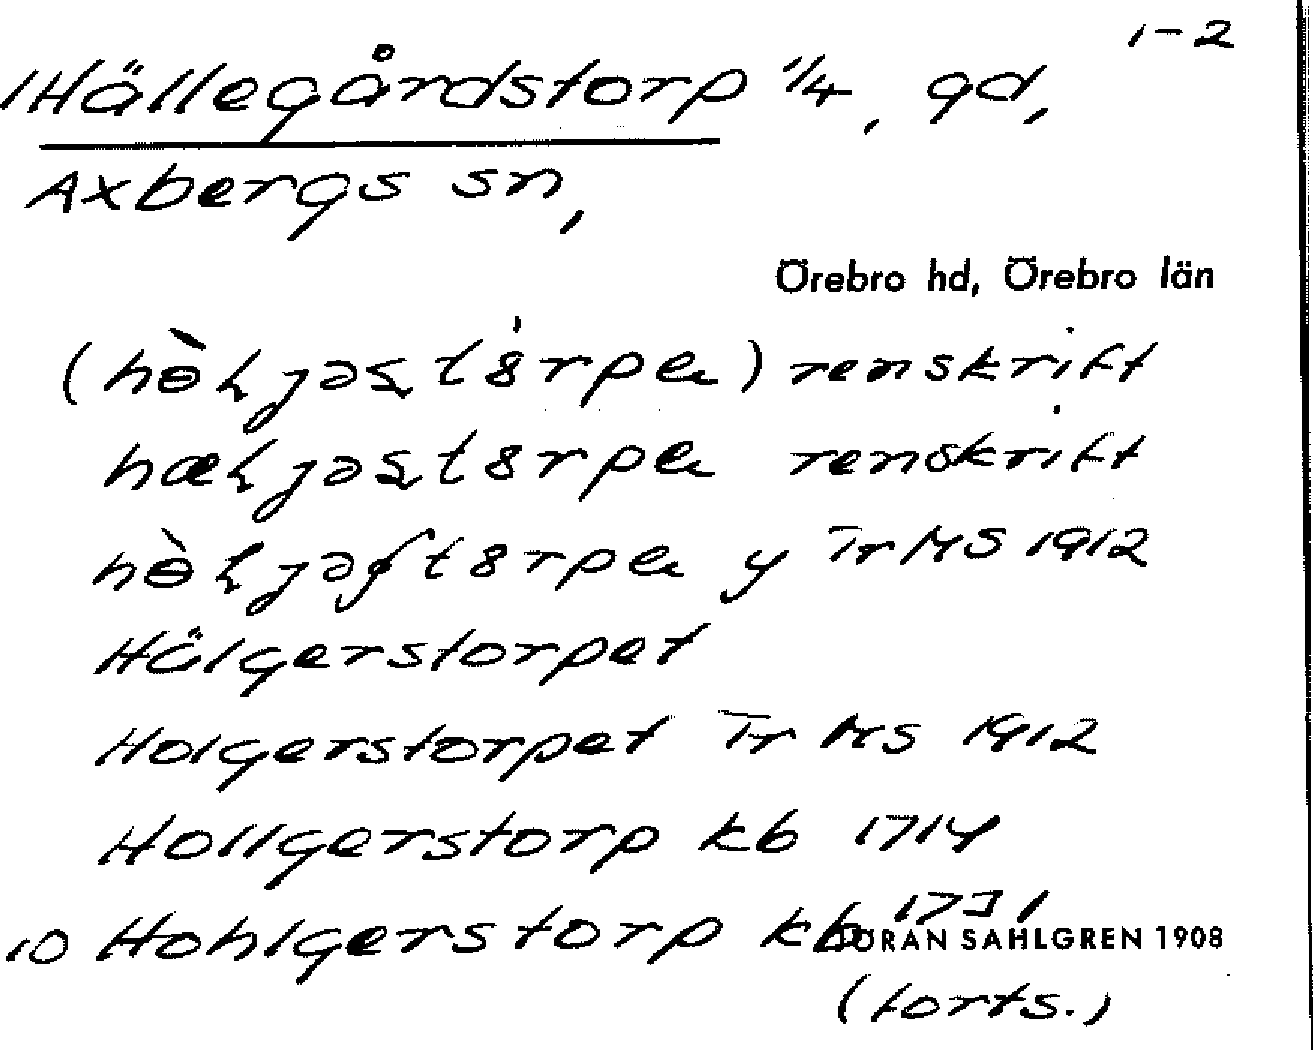 1-2
1 Hällegårdstorp 1/4, gd,
Axbergs sn,
Örebro hd, Örebro län
renskrift
renskrift
y Tr MS 1912
Hälgerstorpet
Holgerstorpet Tr MS 1912
Hollgerstorp kb 1714
10 Hohlgerstorp kb 1731
JÖRAN SAHLGREN 1908
(forts.)